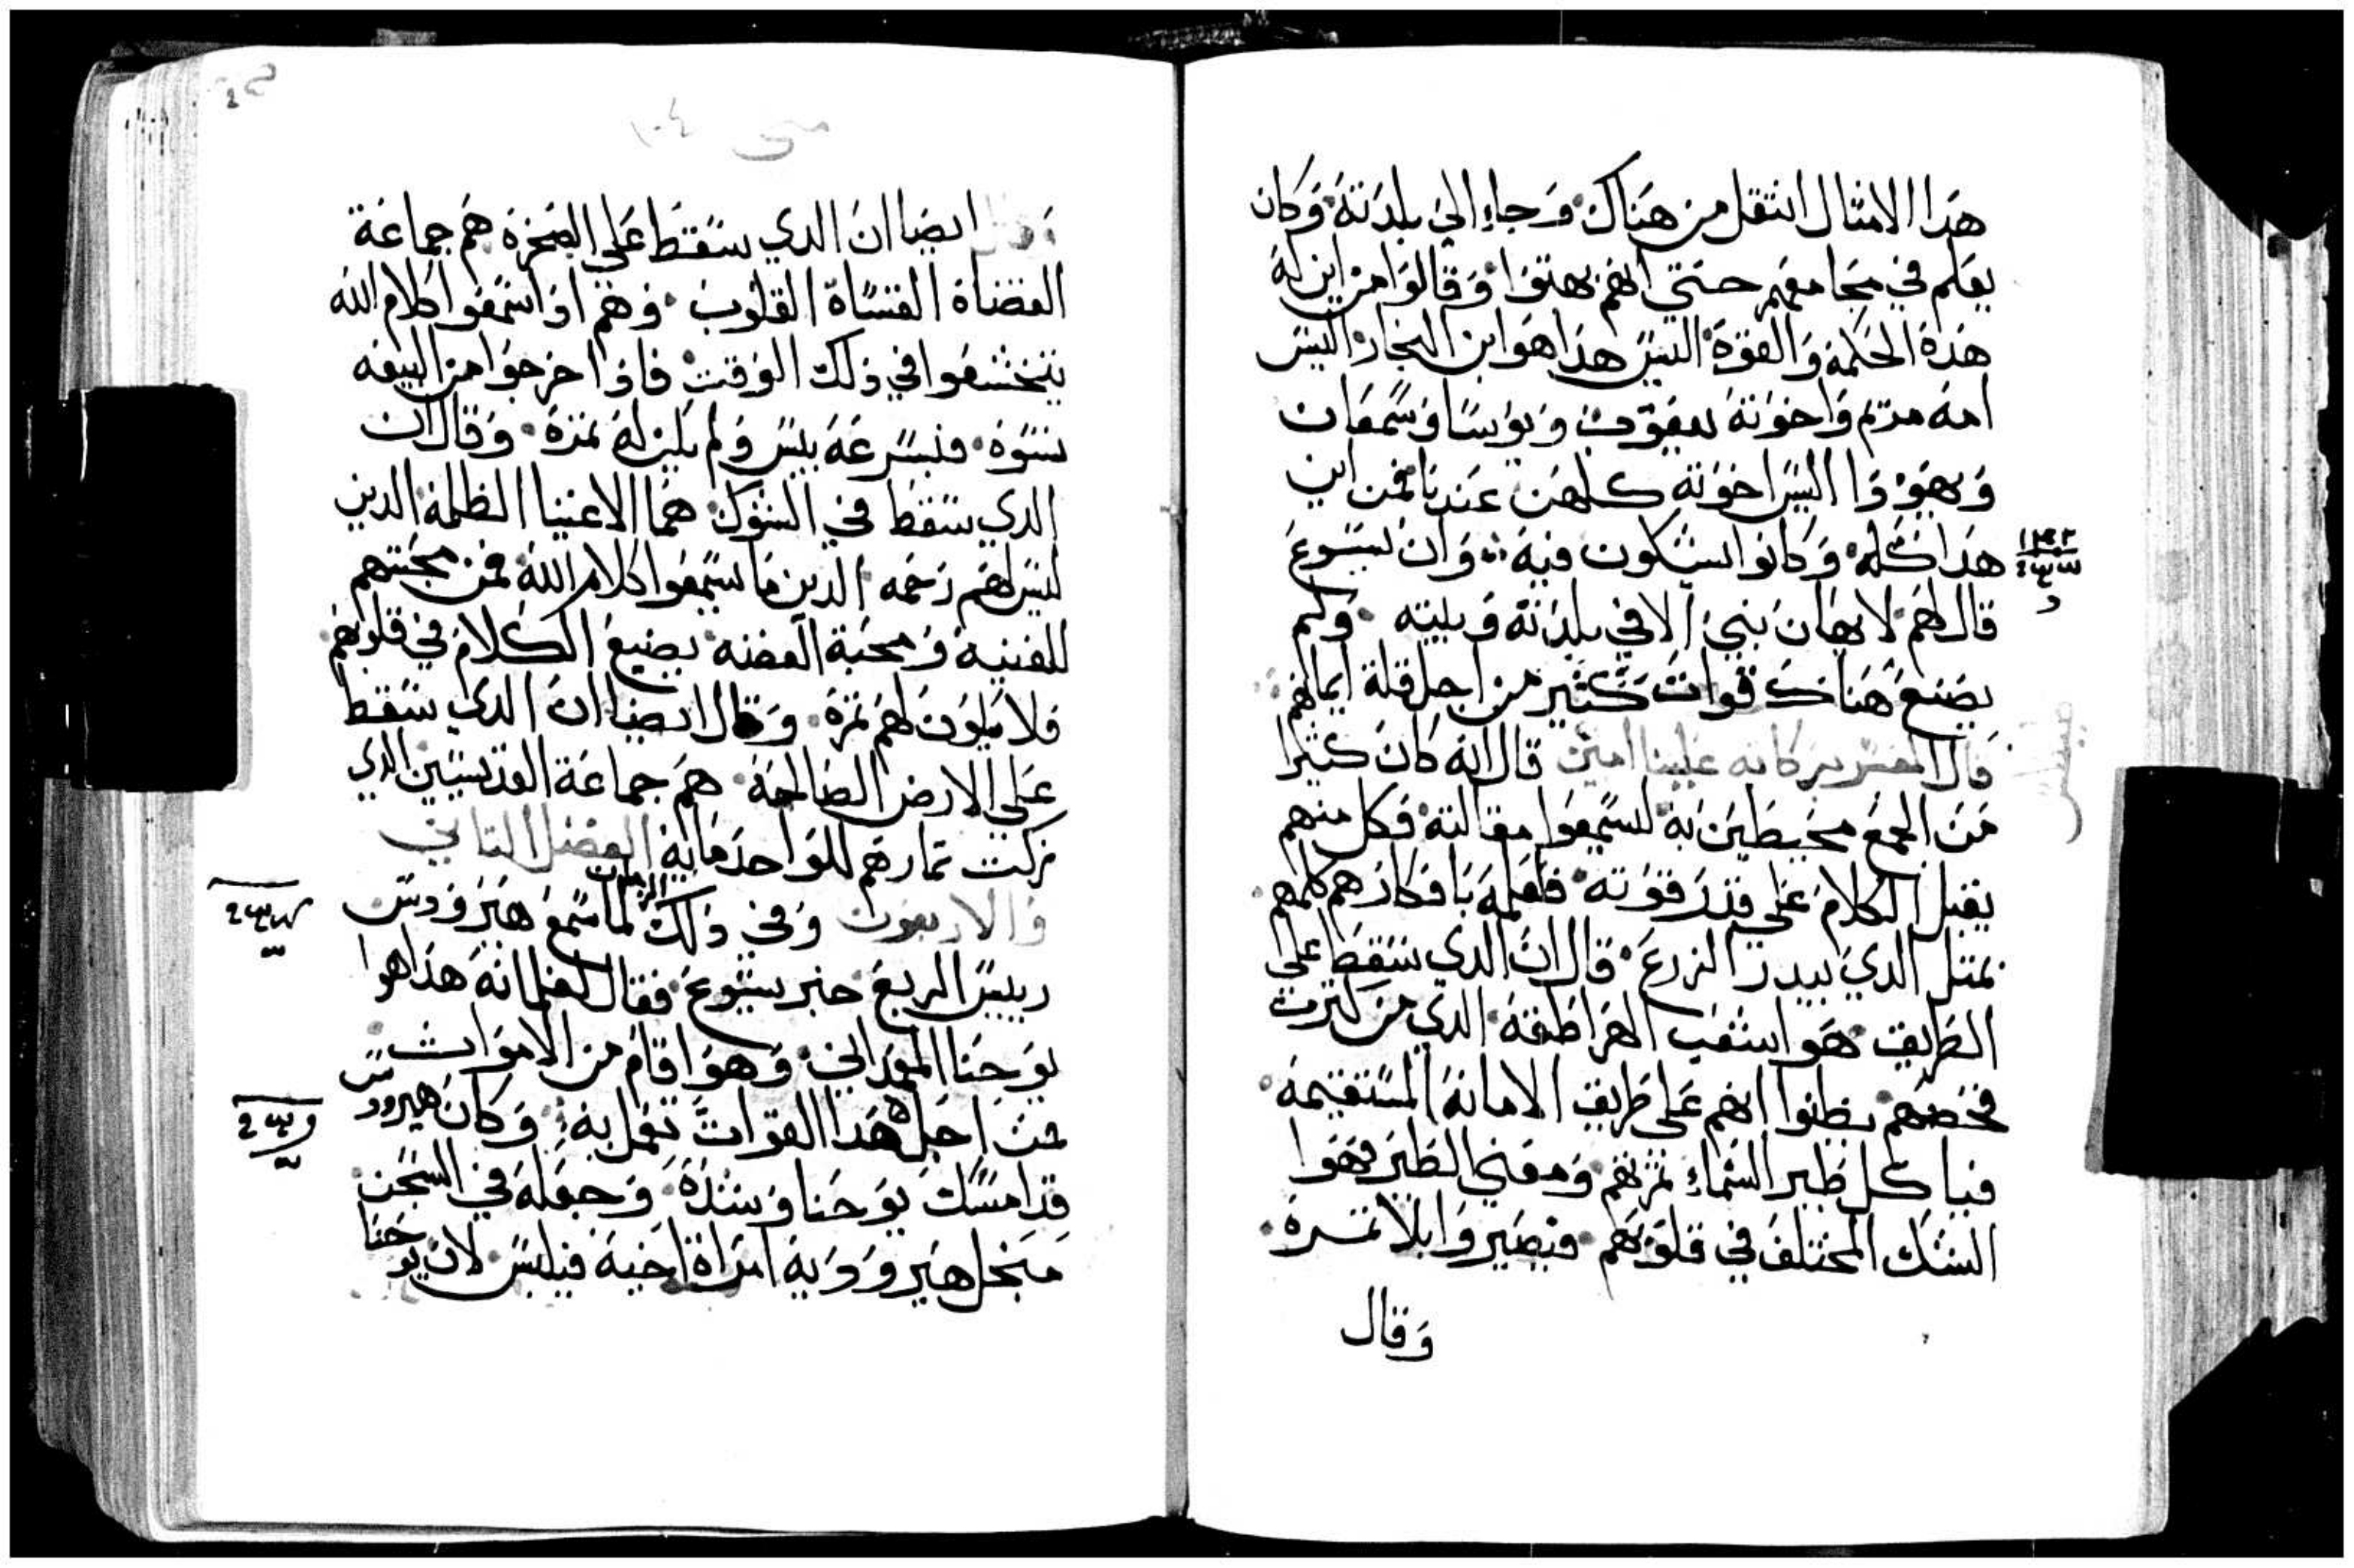 هدا الامثال انتقل من هناك وجاء الي بلدته وكان
يعلم في مجامعهم حتي انهم بهتوا وقالوا من اين له
هذه الحكمة والقوة اليس هدا هو ابن النجار اليس
امه مريم واخوته يعقوب ويوسا وسمعان
ويهودا اليس اخوته كلهن عندنا فمن اين
هدا كله وكانوا يشكون فيه وان يسوع
قال لهم لا يهان نبي الا في بلدته وبيته ولم
يصنع هناك قوات كثير من اجل قلة ايمانهم
قال المفسر بركاته علينا امين قال انه كان كثيرا
من الجمع محيطين به ليسمعوا مقالته فكل منهم
يقبل الكلام علي قدر قوته فاعلمه بافكارهم كلهم
بمتل الدي يبدر الزرع قال ان الدي سقط علي
الطريق هو شعب الهراطقه الدي من كترت
فحصهم يظنوا انهم علي طريق الامانة المستقيمة
فياكل طير السماء ثمرتهم ومعني الطير فهوا
الشك المختلف في قلوبهم فيصيروا بلا تمرة
وقال
متي
وقال ايضا ان الدي سقط علي الصخرة هم جماعة
العصاة القساة القلوب وهم اذا سمعوا كلام الله
يتخشعوا في ذلك الوقت فاذا خرجوا من البيعه
نسوه فبسرعة يبس ولم يكن له ثمرة وقال ان
الدي سقط في الشوك هما الاغنيا الظلمة الدين
ليس لهم رحمه الدين ما سمعوا كلام الله فمن محبتهم
للقنية ومحبة الفضه يضيع الكلام في قلوبهم
فلا يكون لهم ثمرة وقال ايضا ان الدي سقط
علي الارض الصالحة هم جماعة القديسين الدي
زكت تمارهم للواحد ماية الفصل التاني
والاربعون وفي ذلك الزمان لما سمع هيرودس
رييس الربع خبر يسوع فقال لغلمانه هدا هوا
يوحنا المعمداني وهوا قام من الاموات
من اجل هدا القوات تعمل به وكان هيرودس
قد امسك يوحنا وشده وجعله في السجن
من اجل هيروديه امراة اخيه فيلبس لان يوحنا